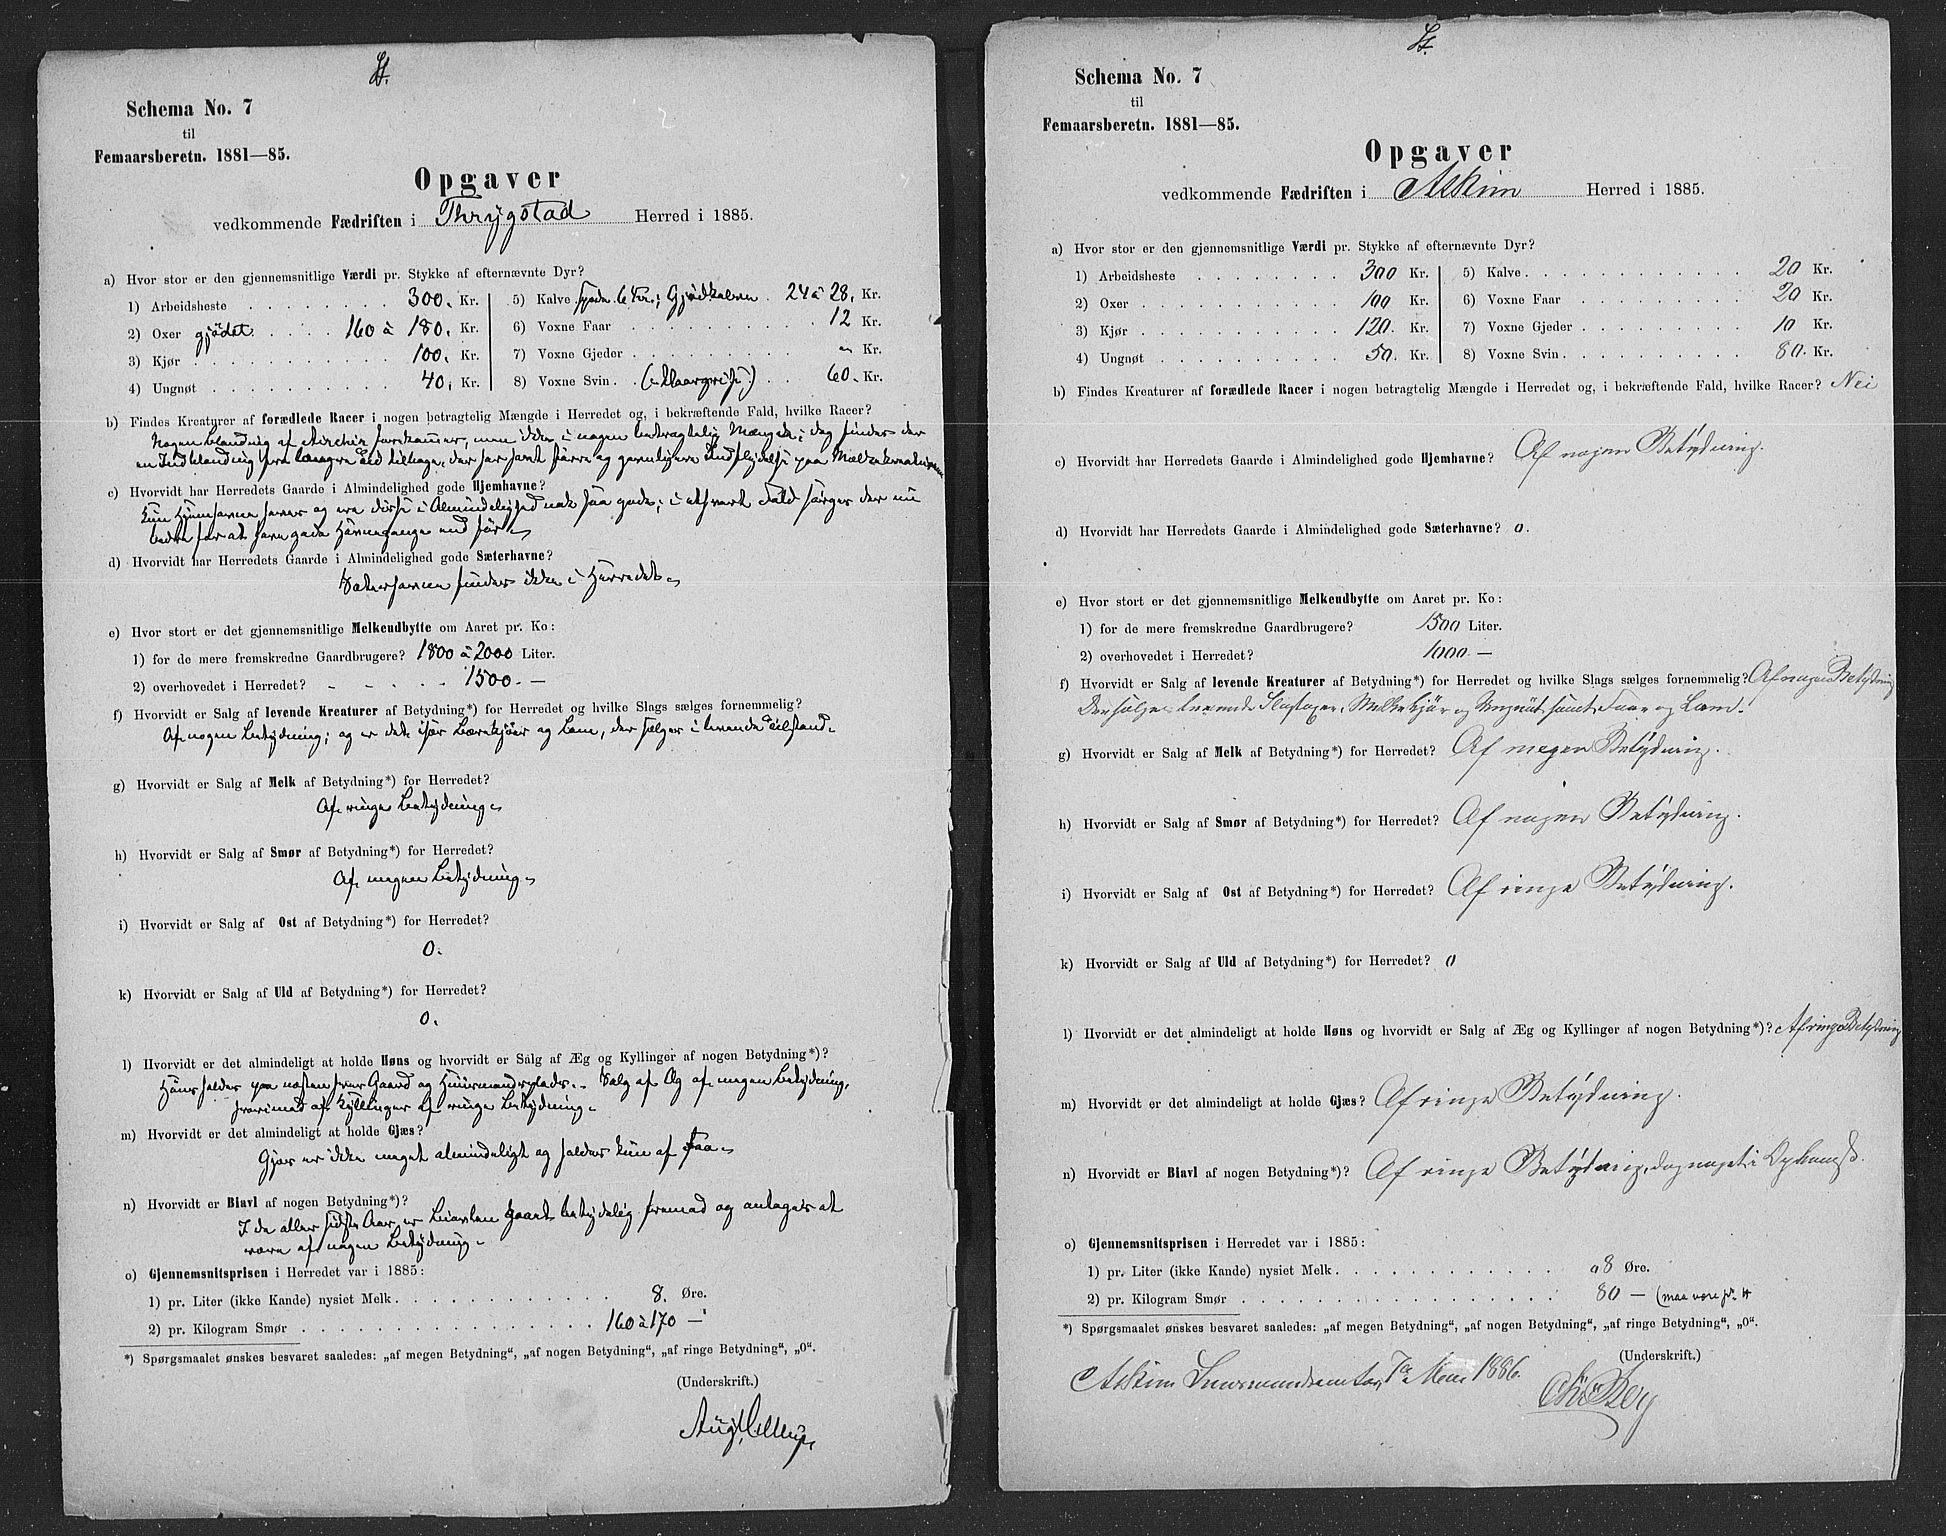 Schema No. 7
til
Femaarsberetn. 1881—85.
Opgaver
vedkommende Fædriften i Thrygstad Herred i 1885.
a) Hvor stor er den gjennemsnitlige Værdi pr. Stykke af efternævnte Dyr?
1) Arbeidsheste . . . . . . . 300. Kr.
2) Oxer gjødet . . . . 160 à 180. Kr.
3) Kjør . . . . . . . . . 100. Kr.
4) Ungnøt . . . . . . . . 40. Kr.
5) Kalve spæde 6 Kr.; Gjødkalven . 24 à 28. Kr.
6) Voxne Faar . . . . . . . . 12 Kr.
7) Voxne Gjeder . . . . . . . . „ Kr.
8) Voxne Svin . . ( ) . . 60. Kr.
b) Findes Kreaturer af forædlede Racer i nogen betragtelig Mængde i Herredet og, i bekræftende Fald, hvilke Racer?
Nogen blanding af forekommer, men ikke i nogen betragtelig Mængde; dog findes der
en Indblanding fra længre Tid tilbage, der har havt større og gavnligere Indflydelse paa
c) Hvorvidt har Herredets Gaarde i Almindelighed gode Hjemhavne?
Kun Hjemhavne haves og ere disse i Almindelighed nok saa gode; i ethvert Fald sørges der nu
bedre for at have gode Havnegange end før.
d) Hvorvidt har Herredets Gaarde i Almindelighed gode Sæterhavne?
Sæterhavne findes ikke i Herredet.
e) Hvor stort er det gjennemsnitlige Melkeudbytte om Aaret pr. Ko:
1) for de mere fremskredne Gaardbrugere? 1800 à 2000 Liter.
2) overhovedet i Herredet? - - - - 1500. —
f) Hvorvidt er Salg af levende Kreaturer af Betydning*) for Herredet og hvilke Slags sælges fornemmelig?
Af nogen Betydning; og er det især og Lam, der sælges i levende Tilstand.
g) Hvorvidt er Salg af Melk af Betydning*) for Herredet?
Af ringe Betydning.
h) Hvorvidt er Salg af Smør af Betydning*) for Herredet?
Af megen Betydning.
i) Hvorvidt er Salg af Ost af Betydning*) for Herredet?
0.
k) Hvorvidt er Salg af Uld af Betydning*) for Herredet?
0.
l) Hvorvidt er det almindeligt at holde Høns og hvorvidt er Salg af Æg og Kyllinger af nogen Betydning*)?
Høns holdes paa næsten hver Gaard og Huusmandsplads. Salg af Æg af megen Betydning,
hvorimod af Kyllinger af ringe Betydning.
m) Hvorvidt er det almindeligt at holde Gjæs?
Gjæs er ikke meget almindeligt og holdes kun af Faa.
n) Hvorvidt er Biavl af nogen Betydning*)?
I de aller sidste Aar er Biavlen gaaet betydelig fremad og antages at
være af nogen Betydning.
o) Gjennemsnitsprisen i Herredet var i 1885:
1) pr. Liter (ikke Kande) nysiet Melk . . . . . . . . 8. Øre.
2) pr. Kilogram Smør . . . . . . . . 160 à 170 —
*) Spørgsmaalet ønskes besvaret saaledes: „af megen Betydning“, „af nogen Betydning“, „af ringe Betydning“, „0“.
(Underskrift.)
Schema No. 7
til
Femaarsberetn. 1881—85.
Opgaver
vedkommende Fædriften i Askim Herred i 1885.
a) Hvor stor er den gjennemsnitlige Værdi pr. Stykke af efternævnte Dyr?
1) Arbeidsheste . . . . . . . 300 Kr.
2) Oxer . . . . . . . . . 100 Kr.
3) Kjør . . . . . . . . . 120. Kr.
4) Ungnøt . . . . . . . . 50. Kr.
5) Kalve . . . . . . . . . 20 Kr.
6) Voxne Faar . . . . . . . . 20 Kr.
7) Voxne Gjeder . . . . . . . . 10 Kr.
8) Voxne Svin . . . . . . . . 80. Kr.
b) Findes Kreaturer af forædlede Racer i nogen betragtelig Mængde i Herredet og, i bekræftende Fald, hvilke Racer? Nei
c) Hvorvidt har Herredets Gaarde i Almindelighed gode Hjemhavne? Af nogen Betydning.
d) Hvorvidt har Herredets Gaarde i Almindelighed gode Sæterhavne? 0.
e) Hvor stort er det gjennemsnitlige Melkeudbytte om Aaret pr. Ko:
1) for de mere fremskredne Gaardbrugere? 1500 Liter.
2) overhovedet i Herredet? 1000 —
f) Hvorvidt er Salg af levende Kreaturer af Betydning*) for Herredet og hvilke Slags sælges fornemmelig? Af nogen Betydning
Der sælges levende Slagtoxer, Melkekjør og Ungnøt samt Faar og Lam.
g) Hvorvidt er Salg af Melk af Betydning*) for Herredet? Af megen Betydning.
h) Hvorvidt er Salg af Smør af Betydning*) for Herredet? Af nogen Betydning.
i) Hvorvidt er Salg af Ost af Betydning*) for Herredet? Af ringe Betydning.
k) Hvorvidt er Salg af Uld af Betydning*) for Herredet? 0
l) Hvorvidt er det almindeligt at holde Høns og hvorvidt er Salg af Æg og Kyllinger af nogen Betydning*)? Af ringe Betydning
m) Hvorvidt er det almindeligt at holde Gjæs? Af ringe Betydning.
n) Hvorvidt er Biavl af nogen Betydning*)? Af ringe Betydning, dog noget i Opkomst.
o) Gjennemsnitsprisen i Herredet var i 1885:
1) pr. Liter (ikke Kande) nysiet Melk . . . . . . . . 08 Øre.
2) pr. Kilogram Smør . . . . . . . . 80 — (maa være pr.
*) Spørgsmaalet ønskes besvaret saaledes: „af megen Betydning“, „af nogen Betydning“, „af ringe Betydning“, „0“.
(Underskrift.)
Askim Lensmandscontor, 7de Mai 1886.